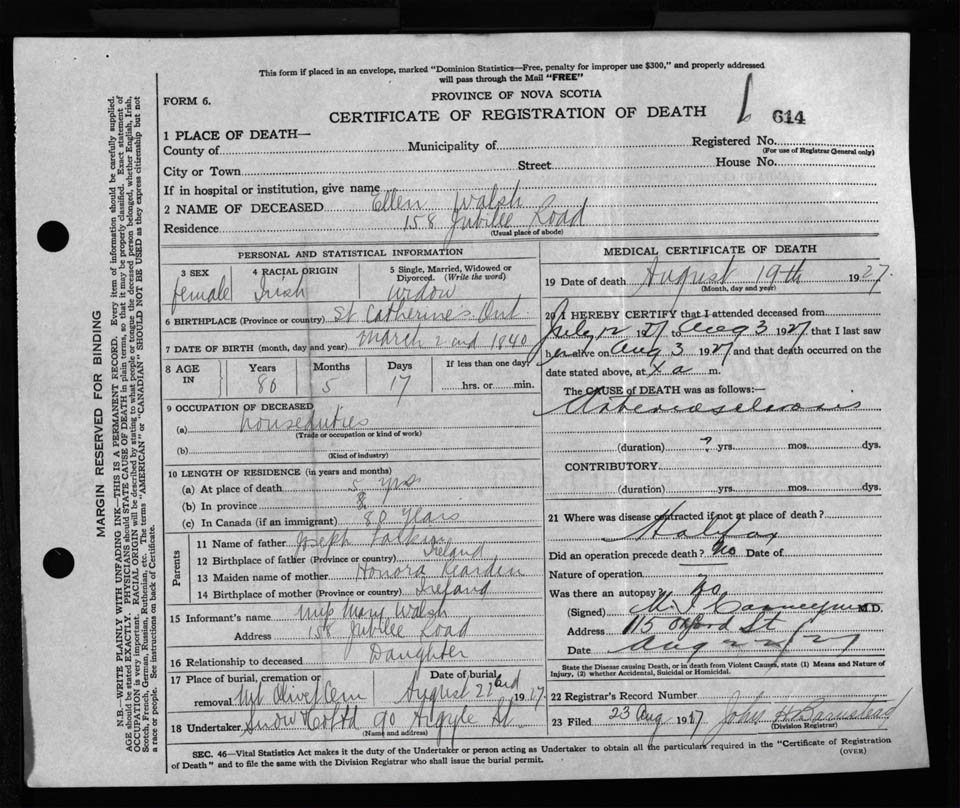 This form if placed in an envelope, marked "Dominion Statistics—Free, penalty for improper use $300," and properly addressed
will pass through the Mail "FREE"
FORM 6.
PROVINCE OF NOVA SCOTIA
CERTIFICATE OF REGISTRATION OF DEATH
614
1 PLACE OF DEATH—
County of
Municipality of
Registered No.
(For use of Registrar General only)
City or Town
Street
House No.
If in hospital or institution, give name
2 NAME OF DECEASED Ellen Walsh
Residence 158 Jubilee Road
(Usual place of abode)
PERSONAL AND STATISTICAL INFORMATION
3 SEX
female
4 RACIAL ORIGIN
Irish
5 Single, Married, Widowed or
Divorced. (Write the word)
widow
6 BIRTHPLACE (Province or country) St Catherines Ont.
7 DATE OF BIRTH (month, day and year) March 2nd 1840
8 AGE
IN
Years
Months
Days
If less than one day?
5 17
hrs. or min.
9 OCCUPATION OF DECEASED
(a) houseduties
(Trade or occupation or kind of work)
(b)
(Kind of industry)
10 LENGTH OF RESIDENCE (in years and months)
(a) At place of death 5 yrs
(b) In province
(c) In Canada (if an immigrant) 80 years
Parents
11 Name of father Joseph
12 Birthplace of father (Province or country) Ireland
13 Maiden name of mother Honora
14 Birthplace of mother (Province or country) Ireland
15 Informant's name Miss Mary Walsh
Address 158 Jubilee Road
16 Relationship to deceased Daughter
17 Place of burial, cremation or
removal Mt Olivet Cem
Date of burial
August 22nd 1927
18 Undertaker Snow Co Ltd 90 Argyle St
(Name and address)
MEDICAL CERTIFICATE OF DEATH
19 Date of death August 19th 1927
(Month, day and year)
20 I HEREBY CERTIFY that I attended deceased from
July 12 1927 to Aug 3 1927 that I last saw
her alive on Aug 3 1927 and that death occurred on the
date stated above, at a m.
The CAUSE of DEATH was as follows:—
Arteriosclerosis
(duration) ? yrs. mos. dys.
CONTRIBUTORY
(duration) yrs. mos. dys.
21 Where was disease contracted if not at place of death?
Halifax
Did an operation precede death? No Date of
Nature of operation
Was there an autopsy? No
(Signed) M.D.
Address 115 Oxford St
Date Aug 22/27
State the Disease causing Death, or in death from Violent Causes, state (1) Means and Nature of
Injury, (2) whether Accidental, Suicidal or Homicidal.
22 Registrar's Record Number
23 Filed 23 Aug 1917 John H. Barnstead
(Division Registrar)
SEC. 46—Vital Statistics Act makes it the duty of the Undertaker or person acting as Undertaker to obtain all the particulars required in the "Certificate of Registration
of Death" and to file the same with the Division Registrar who shall issue the burial permit.
(OVER)
MARGIN RESERVED FOR BINDING
N.B.—WRITE PLAINLY WITH UNFADING INK—THIS IS A PERMANENT RECORD. Every item of information should be carefully supplied.
AGE should be stated EXACTLY. PHYSICIANS should STATE CAUSE OF DEATH in plain terms, so that it may be properly classified. Exact statement of
OCCUPATION is very important. RACIAL ORIGIN will be described by stating to what people or tongue the deceased person belonged, whether English, Irish,
Scotch, French, German, Russian, Ruthenian, etc. The terms "AMERICAN" or "CANADIAN" SHOULD NOT BE USED as they express citizenship but not
a race or people. See instructions on back of Certificate.